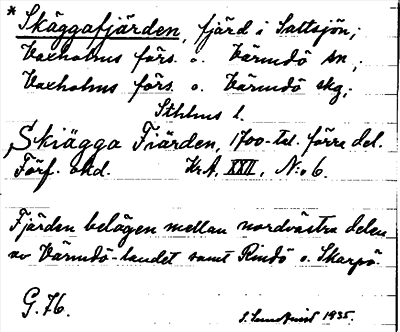 * Skäggafjärden, fjärd i Saltsjön;
Vaxholms förs. o. Värmdö sn;
Vaxholms förs. o. Värmdö skg;
Sthlms l.
Skiägga Fiärden, 1700-tal. förra del.
Förf. okd. Kr.A. XXII, N:o 6.
Fjärden belägen mellan nordvästra delen
av Värmdö-landet samt Rindö o. Skarpö
G.76.
1935.